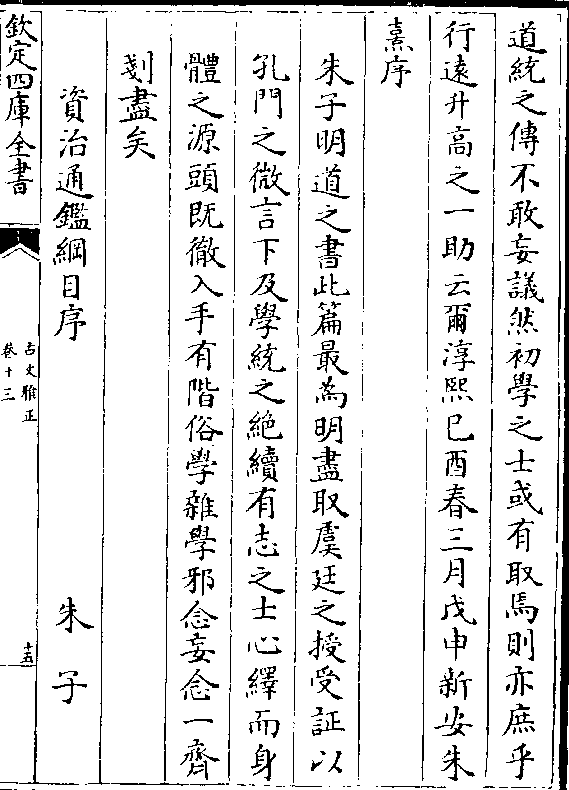 道統之傳不敢妄議然初學之士或有取焉則亦庶乎
行遠升高之一助云爾淳熙己酉春三月戊申新安朱
熹序
朱子明道之書此篇最為明盡取虞廷之授受証以
孔門之微言下及學統之絶續有志之士心繹而身
體之源頭既徹入手有階俗學雜學邪念妄念一齊
剗盡矣
資治通鑑綱目序 朱子
欽定四庫全書
古文雅正
卷十三
十五